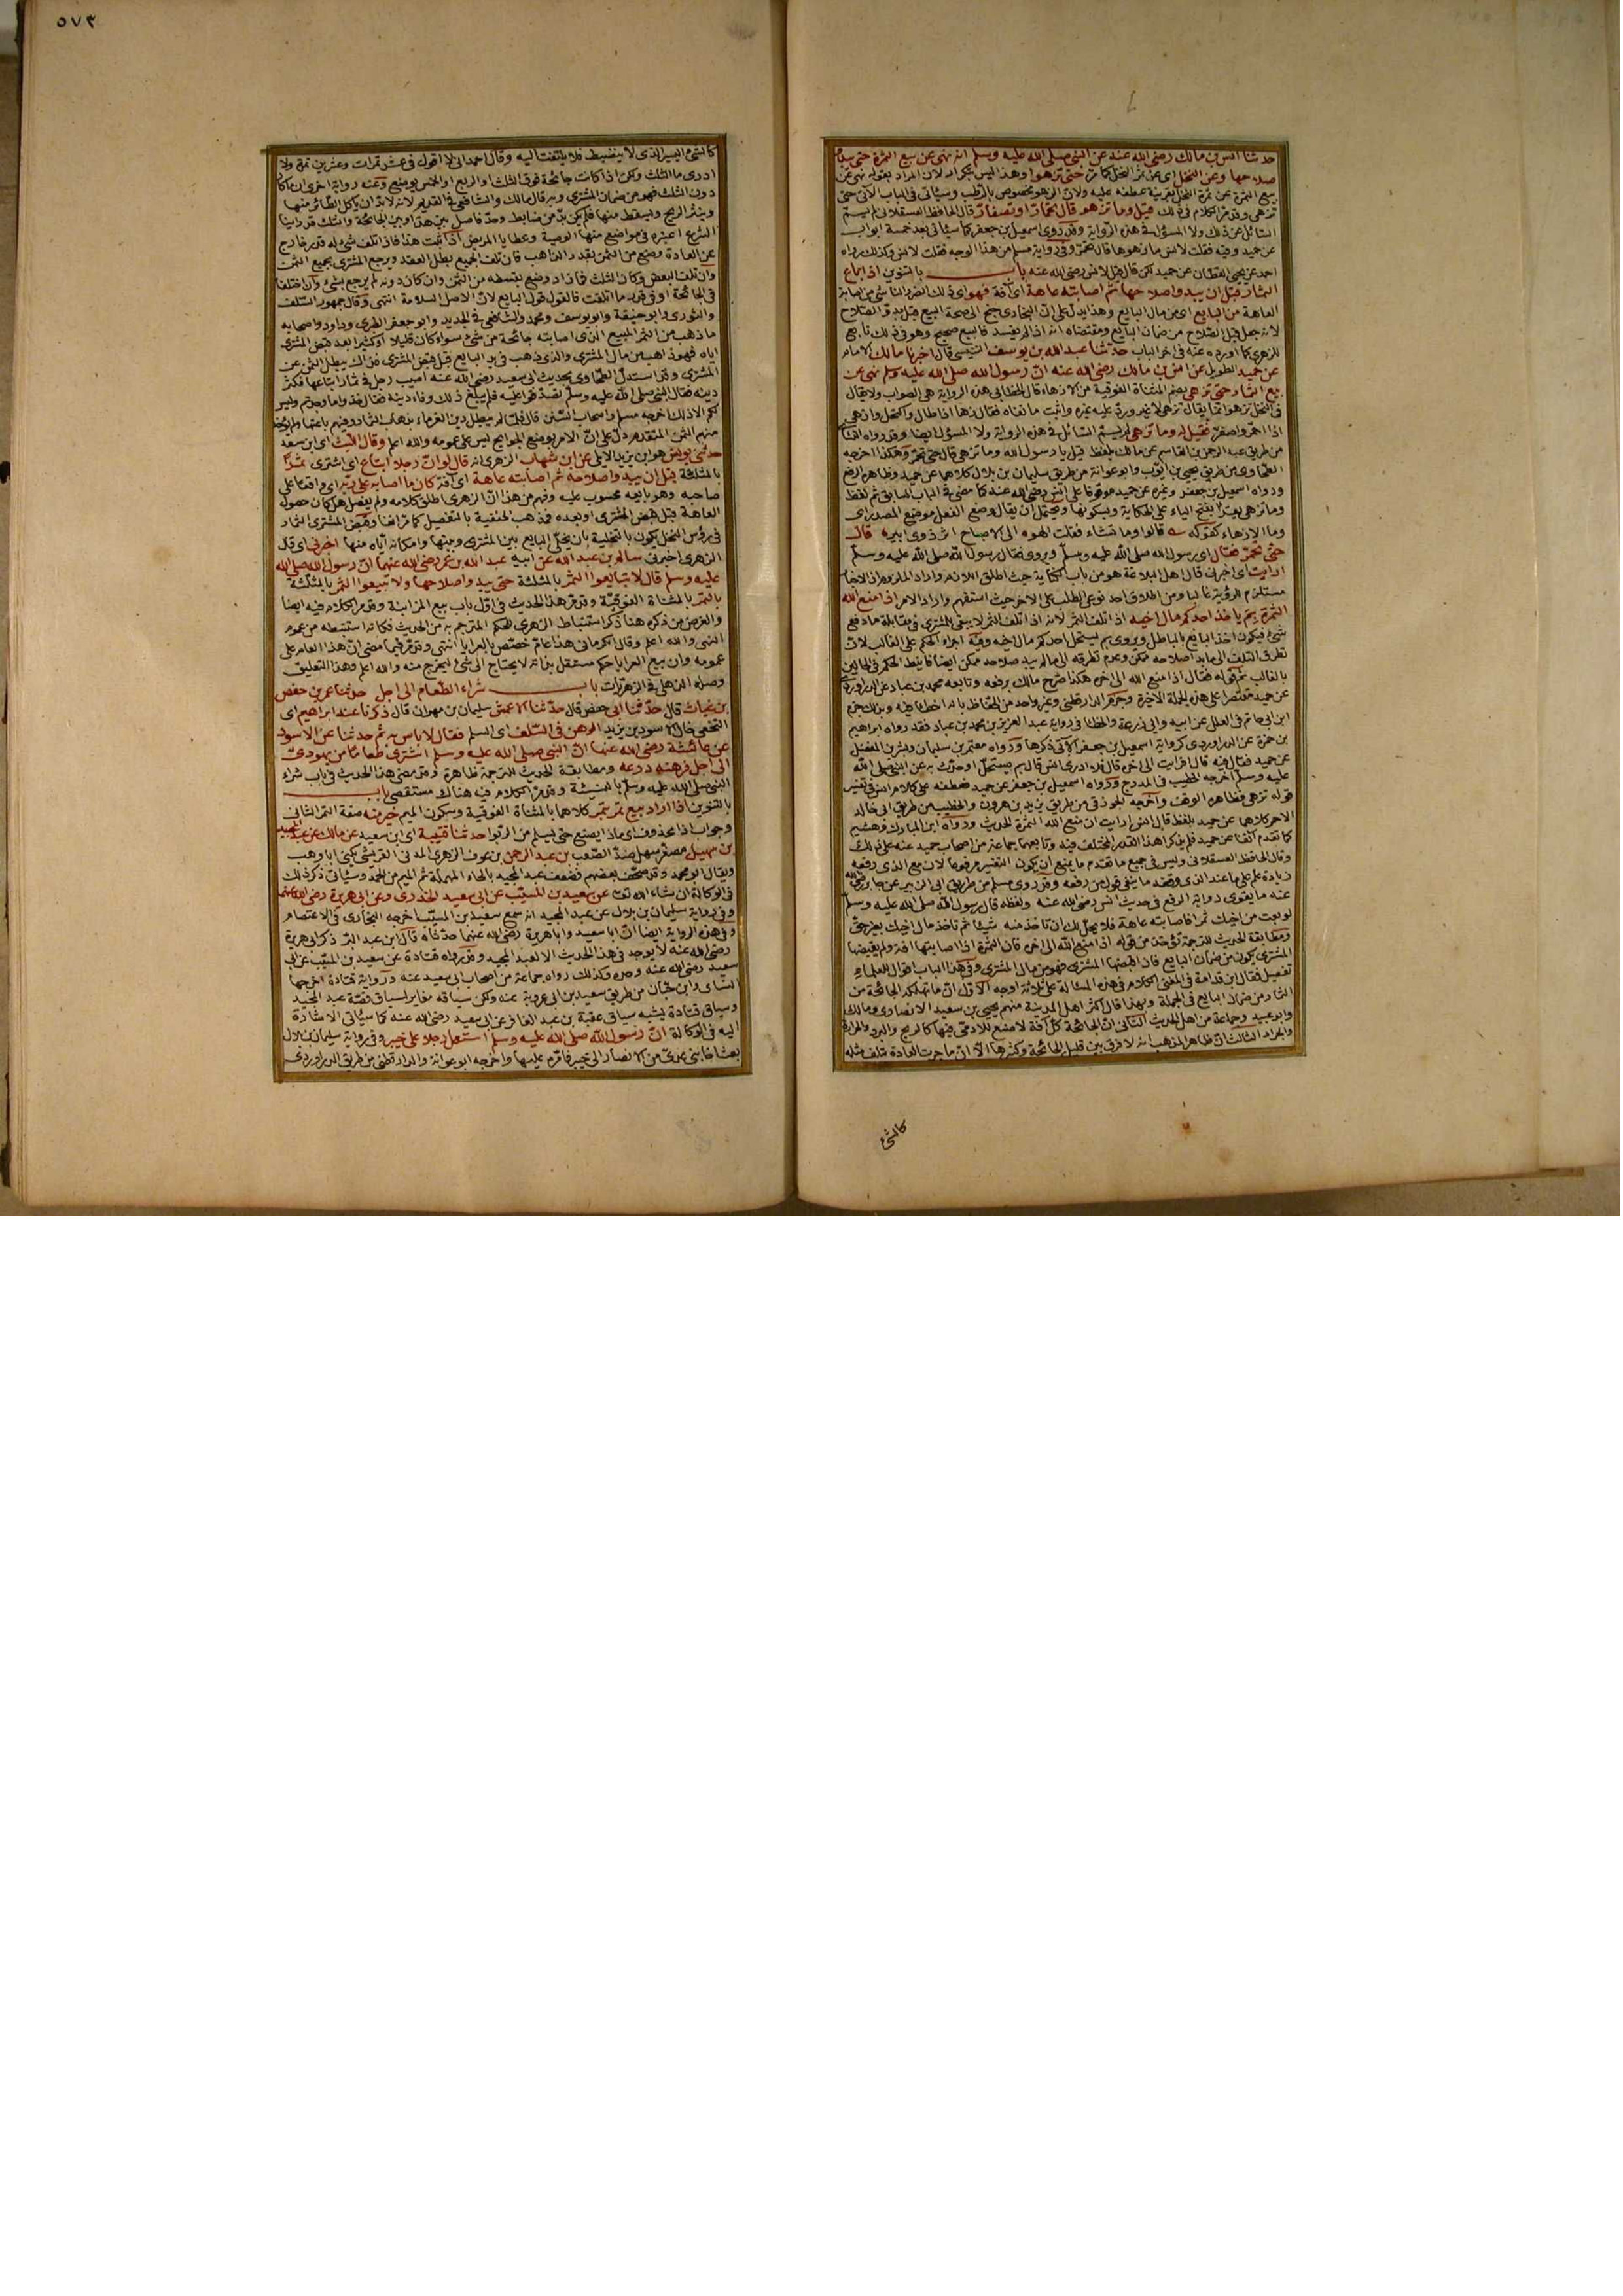 حدثنا انس بن مالك رضى الله عنه عن النبى صلى الله عليه وسلم انه نهى عن بيع الثمرة حتى يبدو
صلاحها وعن النخل اى عن ثمر النخل حتى تزهوا وهذا ليس بتكرار لان المراد بقوله نهى عن
بيع الثمرة عن ثمرة النخل بقرينة عطفه عليه ولان الزهو مخصوص بالرطب وسيأتى فى الباب الآتى حتى
تزهى وقد مر الكلام فى ذلك قيل وما تزهو قال تحمار او تصفار قال الحافظ العسقلانى لم يسم
السائل عن ذلك ولا المسؤل فى هذه الرواية وقد روى اسمعيل بن جعفر كما سيأتى بعد خمسة ابواب
عن حميد وفيه فقلت لانس ما زهوها قال تحمر وفى رواية مسلم من هذا الوجه فقلت لانس وكذلك رواه
احمد عن يحيى القطان عن حميد لكن قال قيل لانس رضى الله عنه باب بالتنوين اذا باع
الثمار قبل ان يبدو صلاحها ثم اصابته عاهة اى آفة فهو اى ذلك الضرر الناشئ من اصابة
العاهة من البايع اى من مال البايع وهذا يدل على ان البخارى جنح الى صحة البيع قبل بدو الصلاح
لانه جعل قبل الصلاح من ضمان البايع ومقتضاه انه اذا لم يفسد فالبيع صحيح وهو فى ذلك تابع
للزهرى كما اورده عنه فى اخر الباب حدثنا عبد الله بن يوسف التنيسى قال اخبرنا مالك الامام
عن حميد الطويل عن انس بن مالك رضى الله عنه ان رسول الله صلى الله عليه وسلم نهى عن
بيع الثمار حتى تزهى بضم المثناة الفوقية من الازهاء قال الخطابى هذه الرواية هى الصواب ولا يقال
فى النخل تزهو انما يقال تزهى لا غير ورد عليه غيره واثبت ما نفاه فقال زها اذا طال واكتمل وازهى
اذا احمر واصفر فقيل له وما تزهى لم يسم السائل فى هذه الرواية ولا المسؤل ايضا وقد رواه النسائى
من طريق عبد الرحمن بن القاسم عن مالك بلفظ قيل يا رسول الله وما تزهى قال حتى تحمر وهكذا اخرجه
الطحاوى من طريق يحيى بن ايوب وابو عوانة من طريق سليمان بن بلال كلاهما عن حميد وظاهره الرفع
ورواه اسمعيل بن جعفر وغيره عن حميد موقوفا على انس رضى الله عنه كما مضى فى الباب السابق ثم لفظ
وما تزهى بفتح الياء على الحكاية وبسكونها ويحتمل ان يقال وضع الفعل موضع المصدر اى
وما الازهاء كقوله قالوا وما تشاء فقلت الهوه الى الاصباح اثر ذوى اثير قال
حتى تحمر فقال اى رسول الله صلى الله عليه وسلم ويروى فقال رسول الله صلى الله عليه وسلم
ارايت اى اخبرنى قال اهل البلاغة هو من باب الكناية حيث اطلق اللازم واراد الملزوم اذ الاخبار
مستلزم للرؤية غالبا ومن اطلاق احد نوعى الطلب على الاخر حيث استفهم واراد الامر اذا منع الله
الثمرة بم ياخذ احدكم مال اخيه اذا تلف الثمر لانه اذا تلف الثمر لا يبقى للمشترى فى مقابلة ما دفع
شئ فيكون اخذ البايع بالباطل ويروى بم يستحل احدكم مال اخيه وفيه اجراء الحكم على الغالب لان
تطرق التلف الى ما بدا صلاحه ممكن وعدم تطرقه الى ما لم يبد صلاحه ممكن ايضا فانيط الحكم فى الحالين
بالغالب ثم قوله فقال اذا منع الله الى اخره هكذا صرح مالك برفعه وتابعه محمد بن عباد عن الدراوردى
عن حميد مقتصرا على هذه الجملة الاخيرة وجزم الدارقطنى وغير واحد من الحفاظ بانه اخطا فيه وبذلك جزم
ابن ابى حاتم فى العلل عن ابيه وابى زرعة والخطا فى رواية عبد العزيز من محمد بن عباد فقد رواه ابراهيم
بن حمزة عن الدراوردى كرواية اسمعيل بن جعفر الآتى ذكرها ورواه معتمر بن سليمان وبشر بن المفضل
عن حميد فقال فيه قال افرايت الى اخره قال فلا ادرى انس قال بم يستحل او حدث به عن النبى صلى الله
عليه وسلم اخرجه الخطيب فى المدرج ورواه اسمعيل بن جعفر عن حميد فعطفه على كلام انس فى تفسير
قوله تزهى فظاهره الوقف واخرجه الجوزقى من طريق يزيد بن هرون والخطيب من طريق ابى خالد
الاحمر كلاهما عن حميد بلفظ قال انس ارايت ان منع الله الثمرة الحديث ورواه ابن المبارك وهشيم
كما تقدم آنفا عن حميد فلم يذكرا هذا القدر المختلف فيه وتابعهما جماعة من اصحاب حميد عنه على ذلك
وقال الحافظ العسقلانى وليس فى جميع ما تقدم ما يمنع ان يكون التفسير مرفوعا لان مع الذى رفعه
زيادة علم على ما عند الذى وقفه ما ينفى قول من رفعه وقد روى مسلم من طريق ابى الزبير عن جابر رضى الله
عنه ما يقوى رواية الرفع فى حديث انس رضى الله عنه ولفظه قال رسول الله صلى الله عليه وسلم
لو بعت من اخيك ثمرا فاصابته عاهة فلا يحل لك ان تاخذ منه شيئا ثم تاخذ مال اخيك بغير حق
ومطابقة الحديث للترجمة تؤخذ من قوله اذا منع الله الى اخره فان الثمرة اذا اصابتها افة ولم يقبضها
المشترى يكون من ضمان البايع فان قبضها المشترى فهو من مال المشترى وفى هذا الباب اقوال للعلماء
تفصيل فقال ابن قدامة فى المغنى الكلام فى هذه المسالة على ثلاثة اوجه الاول ان ما تهلكه الجائحة من
الثمار من ضمان البايع فى الجملة وبهذا قال اكثر اهل المدينة منهم يحيى بن سعيد الانصارى ومالك
وابو عبيد وجماعة من اهل الحديث الثانى ان الجائحة كل آفة لا صنع للادمى فيها كالريح والبرد والحر
والجراد الثالث ان ظاهر المذهب انه لا فرق بين قليل الجائحة وكثيرها الا ان ما جرت العادة بتلف مثله
كالشئ
٥٧٣
كالشئ اليسير الذى لا ينضبط فلا يلتفت اليه وقال احمد انى لا اقول فى عشر تمرات وعشرين تمرة ولا
ادرى ما الثلث ولكن اذا كانت جائحة فوق الثلث او الربع او الخمس يوضع وعنه رواية اخرى ان ما كان
دون الثلث فهو من ضمان المشترى وبه قال مالك والشافعى فى القديم لانه لا بد ان ياكل الطائر منها
وينثر الريح ويسقط منها فلم يكن بد من ضابط وحد فاصل بين هذا وبين الجائحة والثلث قد راينا
الشرع اعتبره فى مواضع منها الوصية وعطايا المريض اذا ثبت هذا فاذا تلف شئ له قدر خارج
عن العادة وضع من الثمن بقدر الذاهب فان تلف الجميع بطل العقد ويرجع المشترى بجميع الثمن
وان تلف البعض وكان الثلث فما زاد وضع بقسطه من الثمن وان كان دونه لم يرجع بشئ وان اختلفا
فى الجائحة او فى قدر ما اتلفت فالقول قول البايع لان الاصل السلامة انتهى وقال جمهور السلف
والثورى وابو حنيفة وابو يوسف ومحمد والشافعى فى الجديد وابو جعفر الطبرى وداود واصحابه
ما ذهب من الثمر المبيع الذى اصابته جائحة من شئ سواء كان قليلا او كثيرا بعد قبض المشترى
اياه فهو ذاهب من مال المشترى والذى ذهب فى يد البايع قبل قبض المشترى فذاك يبطل الثمن عن
المشترى وقد استدل الطحاوى بحديث ابى سعيد رضى الله عنه اصيب رجل فى ثمار ابتاعها فكثر
دينه فقال النبى صلى الله عليه وسلم تصدقوا عليه فلم يبلغ ذلك وفاء دينه فقال خذوا ما وجدتم وليس
لكم الا ذلك اخرجه مسلم واصحاب السنن قال فلما لم يبطل دين الغرماء بذهاب الثمار وفيهم باعتها ولم يؤخذ
منهم الثمن المتقدم دل على ان الامر بوضع الجوايح ليس على عمومه والله اعلم وقال الليث اى ابن سعد
حدثنى يونس هو ابن يزيد الايلى عن ابن شهاب الزهرى انه قال لو ان رجلا ابتاع اى اشترى ثمرا
بالمثلثة قبل ان يبدو صلاحه ثم اصابته عاهة اى آفة كان ما اصابه على ربه اى واقعا على
صاحبه وهو بايعه محسوب عليه وفهم من هذا ان الزهرى اطلق كلامه ولم يفصل هل كان حصول
العاهة قبل قبض المشترى او بعده فمذهب الحنفية بالتفصيل كما مر آنفا وقبض المشترى الثمار
فى رؤس النخل يكون بالتخلية بان يخلى البايع بين المشترى وبينها وامكانه اياه منها اخبرنى اى قال
الزهرى اخبرنى سالم بن عبد الله عن ابيه عبد الله بن عمر رضى الله عنهما ان رسول الله صلى الله
عليه وسلم قال لا تبايعوا الثمر بالمثلثة حتى يبدو صلاحها ولا تبيعوا الثمر بالمثلثة
بالتمر بالمثناة الفوقية وقد مر هذا الحديث فى اول باب بيع المزابنة وقد مر الكلام فيه ايضا
والغرض من ذكره هنا ذكر استنباط الزهرى للحكم المترجم به من الحديث فكانه استنبطه من عموم
النهى والله اعلم وقال الكرمانى هذا عام خصص بالعرايا انتهى وقد مر فيما مضى ان هذا العام على
عمومه وان بيع العرايا حكم مستقل بذاته لا يحتاج الى شئ ليخرج منه والله اعلم وهذا التعليق
وصله الذهلى فى الزهريات باب شراء الطعام الى اجل حدثنا عمر بن حفص
بن غياث قال حدثنا ابى حفص قال حدثنا الاعمش سليمان بن مهران قال ذكرنا عند ابراهيم اى
النخعى خال الاسود بن يزيد الرهن فى السلف اى السلم فقال لا باس به ثم حدثنا عن الاسود
عن عائشة رضى الله عنها ان النبى صلى الله عليه وسلم اشترى طعاما من يهودى
الى اجل فرهنه درعه ومطابقة الحديث للترجمة ظاهرة وقد مضى هذا الحديث فى باب شراء
النبى صلى الله عليه وسلم بالنسيئة وقد مر الكلام فيه هناك مستقصى باب
بالتنوين اذا اراد بيع تمر بتمر كلاهما بالمثناة الفوقية وسكون الميم خير منه صفة التمر الثانى
وجواب اذا محذوف اى ماذا يصنع حتى يسلم من الربوا حدثنا قتيبة اى ابن سعيد عن مالك عن عبد المجيد
بن سهيل مصغر سهل ضد الصعب بن عبد الرحمن بن عوف الزهرى المدنى القرشى يكنى ابا وهب
ويقال ابو محمد وقد صحف بعضهم فضعف عبد المجيد بالحاء المهملة ثم الميم من الحمد وسيأتى ذكر ذلك
فى الوكالة ان شاء الله تعالى عن سعيد بن المسيب عن ابى سعيد الخدرى وعن ابى هريرة رضى الله عنهما
وفى رواية سليمان بن بلال عن عبد المجيد انه سمع سعيد بن المسيب اخرجه البخارى فى الاعتصام
وفى هذه الرواية ايضا ان ابا سعيد وابا هريرة رضى الله عنهما حدثاه قال ابن عبد البر ذكر ابى هريرة
رضى الله عنه لا يوجد فى هذا الحديث الا لعبد المجيد وقد رواه قتادة عن سعيد بن المسيب عن ابى
سعيد رضى الله عنه وحده وكذلك رواه جماعة من اصحاب ابى سعيد عنه ورواية قتادة اخرجها
النسائى وابن حبان من طريق سعيد بن ابى عروبة عنه ولكن سياقه مغاير لسياق قصة عبد المجيد
وسياق قتادة يشبه سياق عقبة بن عبد الغافر عن ابى سعيد رضى الله عنه كما سيأتى الاشارة
اليه فى الوكالة ان رسول الله صلى الله عليه وسلم استعمل رجلا على خيبر وفى رواية سليمان بن بلال
بعث اخا بنى عدى من الانصار الى خيبر فامره عليها واخرجه ابو عوانة والدارقطنى من طريق الدراوردى